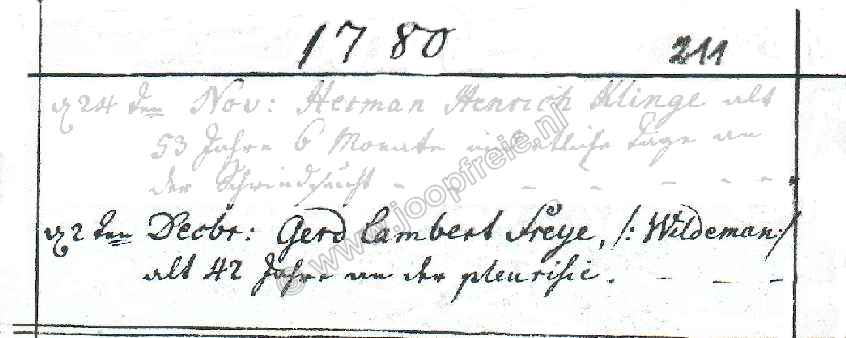 1780 211
d 24 den Nov: Herman Henrich Klinge alt
53 Jahre 6 Monate und etliche Tage an
der Schwindsucht - - - - - -
d 2 den Decbr: Gerd Lambert Freye, /: Wildeman :/
alt 42 Jahre an der pleurisie. - - - -
© www.joopfreie.nl